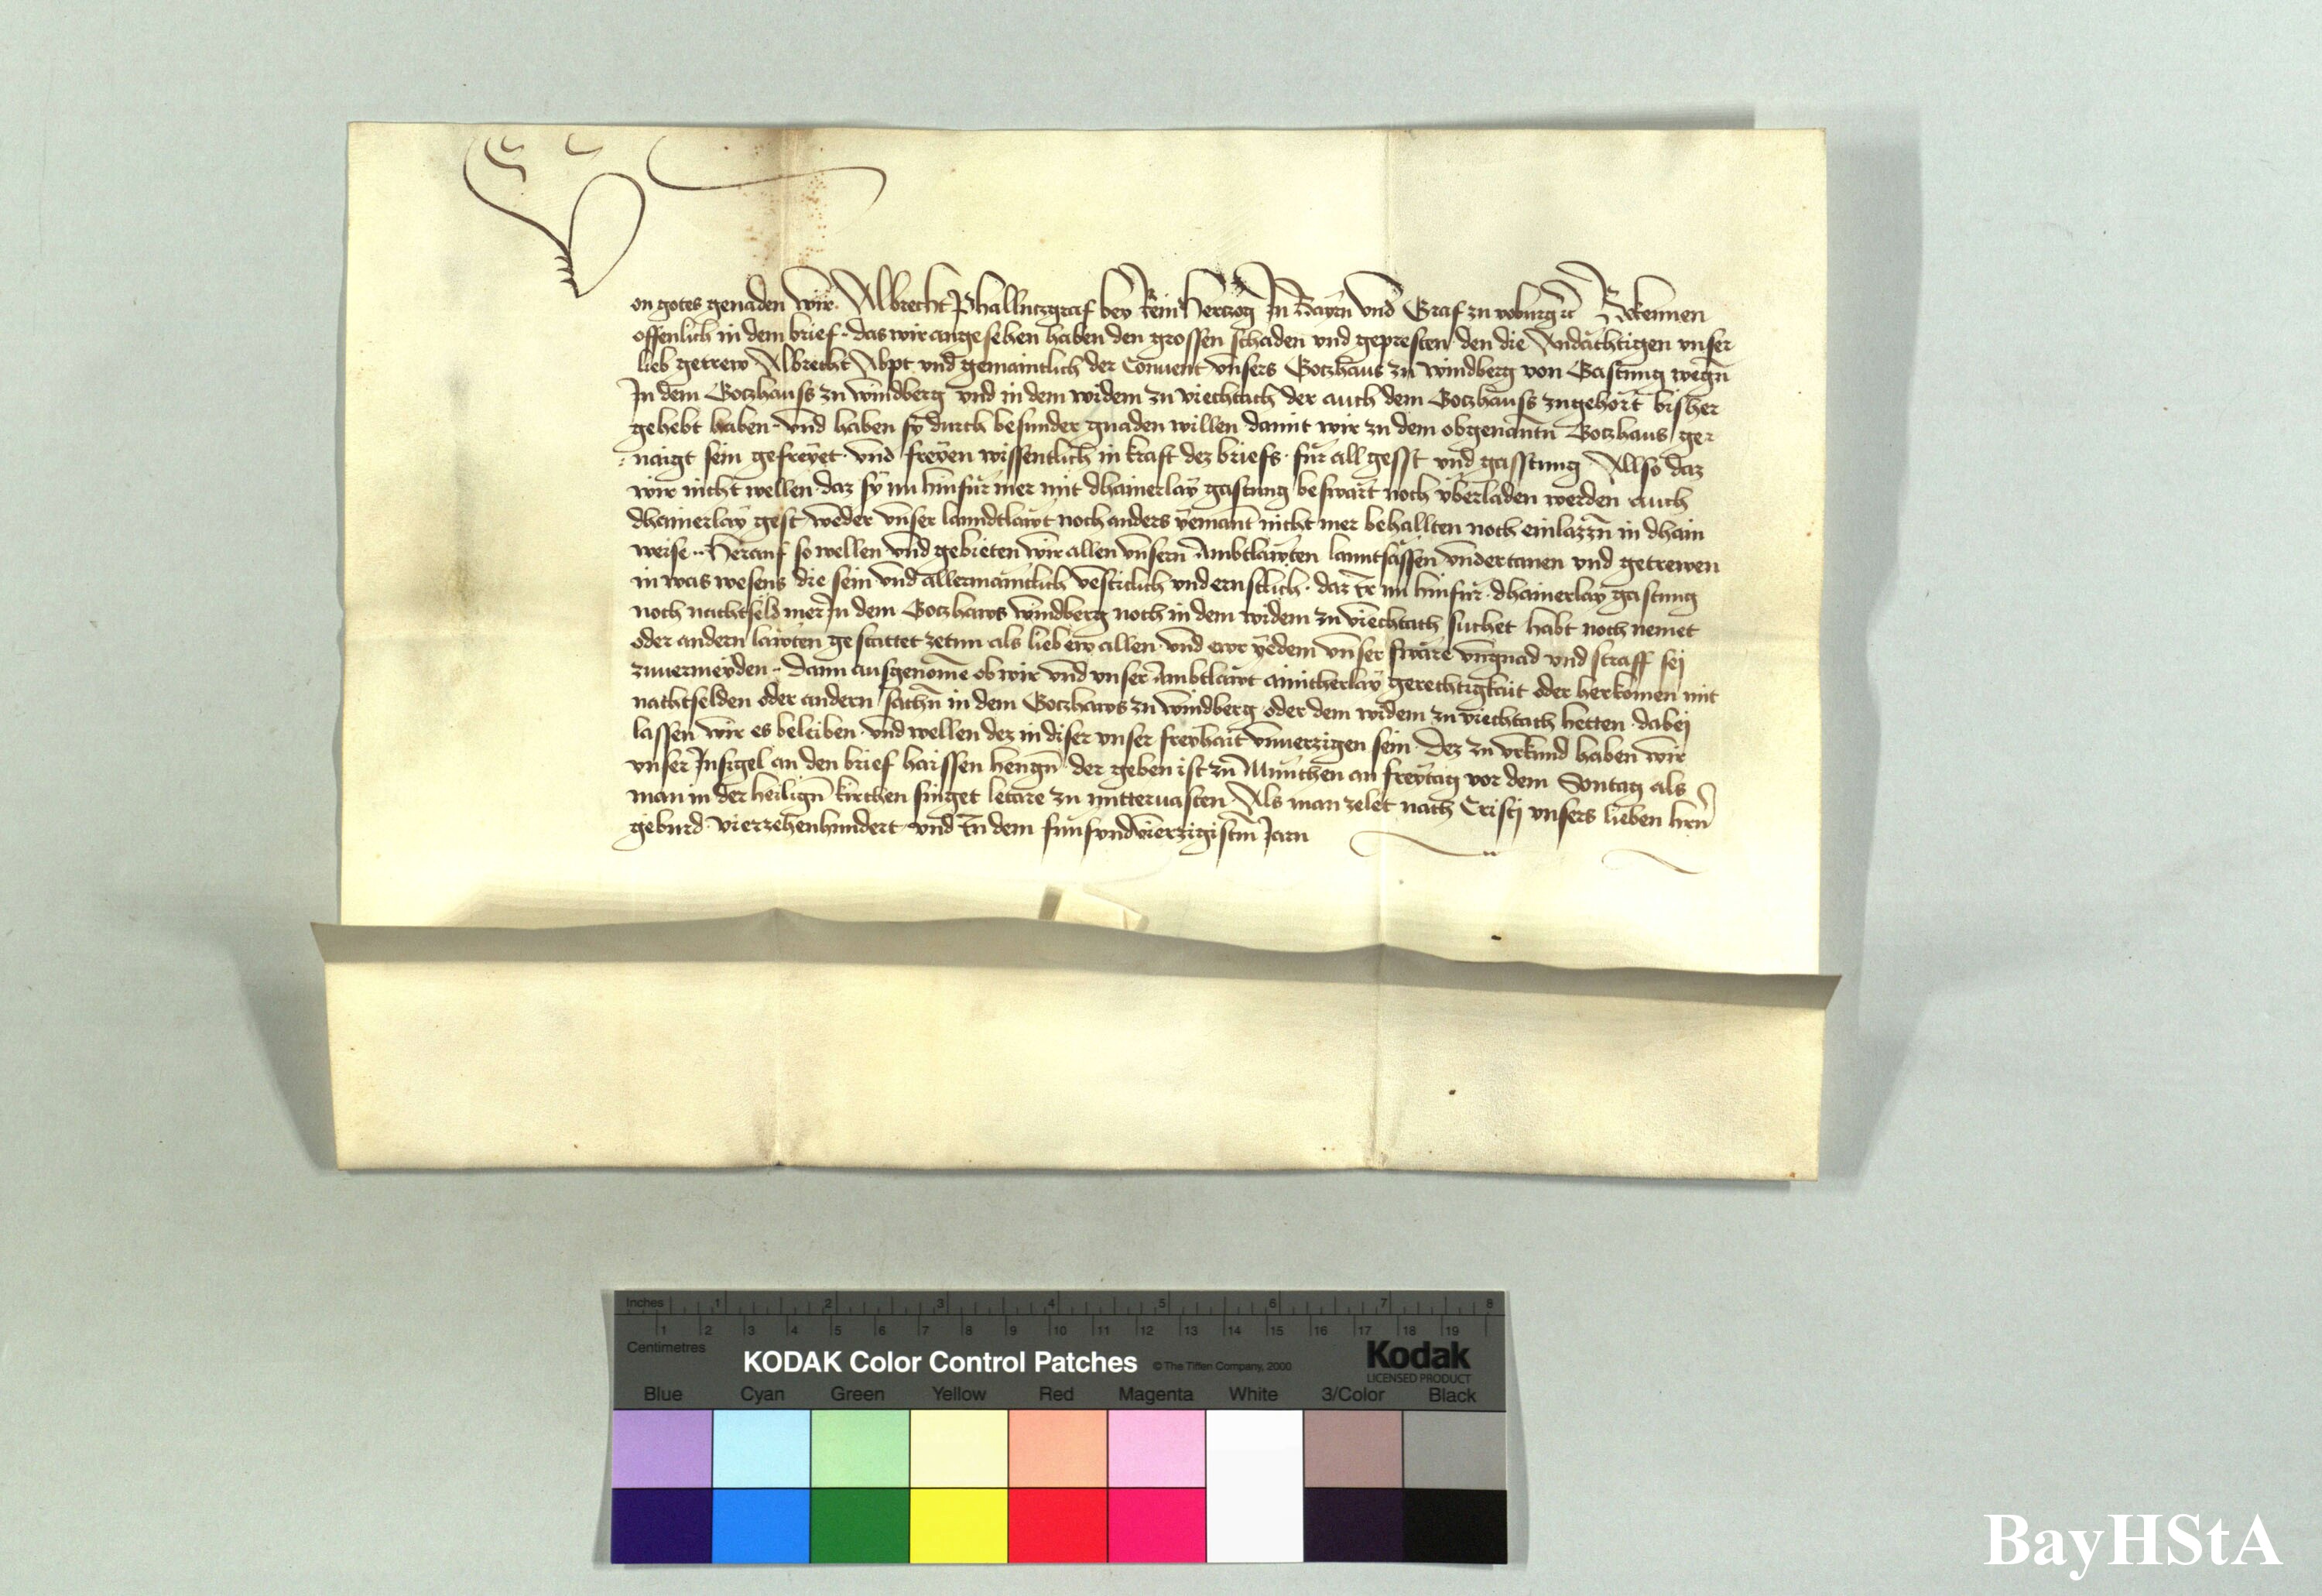 Von gotes genaden wir Albrecht Phallntzgraf bey Rein Hertzog In Bayrn vnd Graf zu voburg ꝛc Bekennen
offenlich in dem brief · das wir angesehen haben den grossen schaden vnd gepresten den die Andächtigen vnser
lieb getrew Albrecht Abpt vnd gemaintlich der Conuent vnsers Gotzhaus zu Windberg von Gastung wegn̄
In dem Gotzhauss zu Windberg vnd in dem widem zu viechtach der auch dem Gotzhauss zugehört bisher
gehebt haben · vnd haben sy durch besunder gnaden willen damit wir zu dem obgenantn̄ Gotzhaus ge-
naigt sein gefreyet · vnd freyen wissentlich in kraft dez briefs · für all gesst vnd gasstung · Allso daz
wir nicht wellen daz sy nu hinfür mer mit dhainerlay gastung beswärt noch vberladen werden auch
dhainerlay gest weder vnser lanndtlawt noch anders yemant nicht mer behallten noch einlazzn̄ in dhain
weise ·· Herauf so wellen vnd gebieten wir allen vnsern Ambtlawten lanntsässen vndertanen vnd getrewen
in was wesens die sein vnd allermaintlich vesticlich vnd ernstlich · daz Ir nu hinfür · dhainerlay gastung
noch nachtseld mer In dem Gotzhaws Windberg noch in dem widem zu viechtach suchet habt noch nemet
oder andern lawten gestattet zetun als lieb ew allen vnd ewr yedem vnser swäre vngnad vnd straff sej
zuuermeyden · Dann ausgenome ob wir vnd vnser Ambtlawt ainicherlay gerechtigkait oder herkomen mit
nachtselden oder andern sachn̄ in dem Gotzhaws zu Windberg oder dem widem zu viechtach hetten · dabej
lassen wir es beleiben · vnd wellen dez in diser vnser freyhait vnuerzigen sein · Dez zu vrkund haben wir
vnser Insigel an den brief haissen hengn̄ · der geben ist zu München an freytag vor dem Sontag als
man in der heilign̄ kirchen singet letare zu mitteruasten · Als man zelet nach Cristj vnsers lieben hrn̄
geburd · vierzehenhundert vnd In dem funfvndvierzigistm̄ Jarn
Inches 1 2 3 4 5 6 7 8
1 2 3 4 5 6 7 8 9 10 11 12 13 14 15 16 17 18 19
Centimetres
KODAK Color Control Patches © The Tiffen Company, 2000 Kodak
LICENSED PRODUCT
Blue Cyan Green Yellow Red Magenta White 3/Color Black
BayHStA